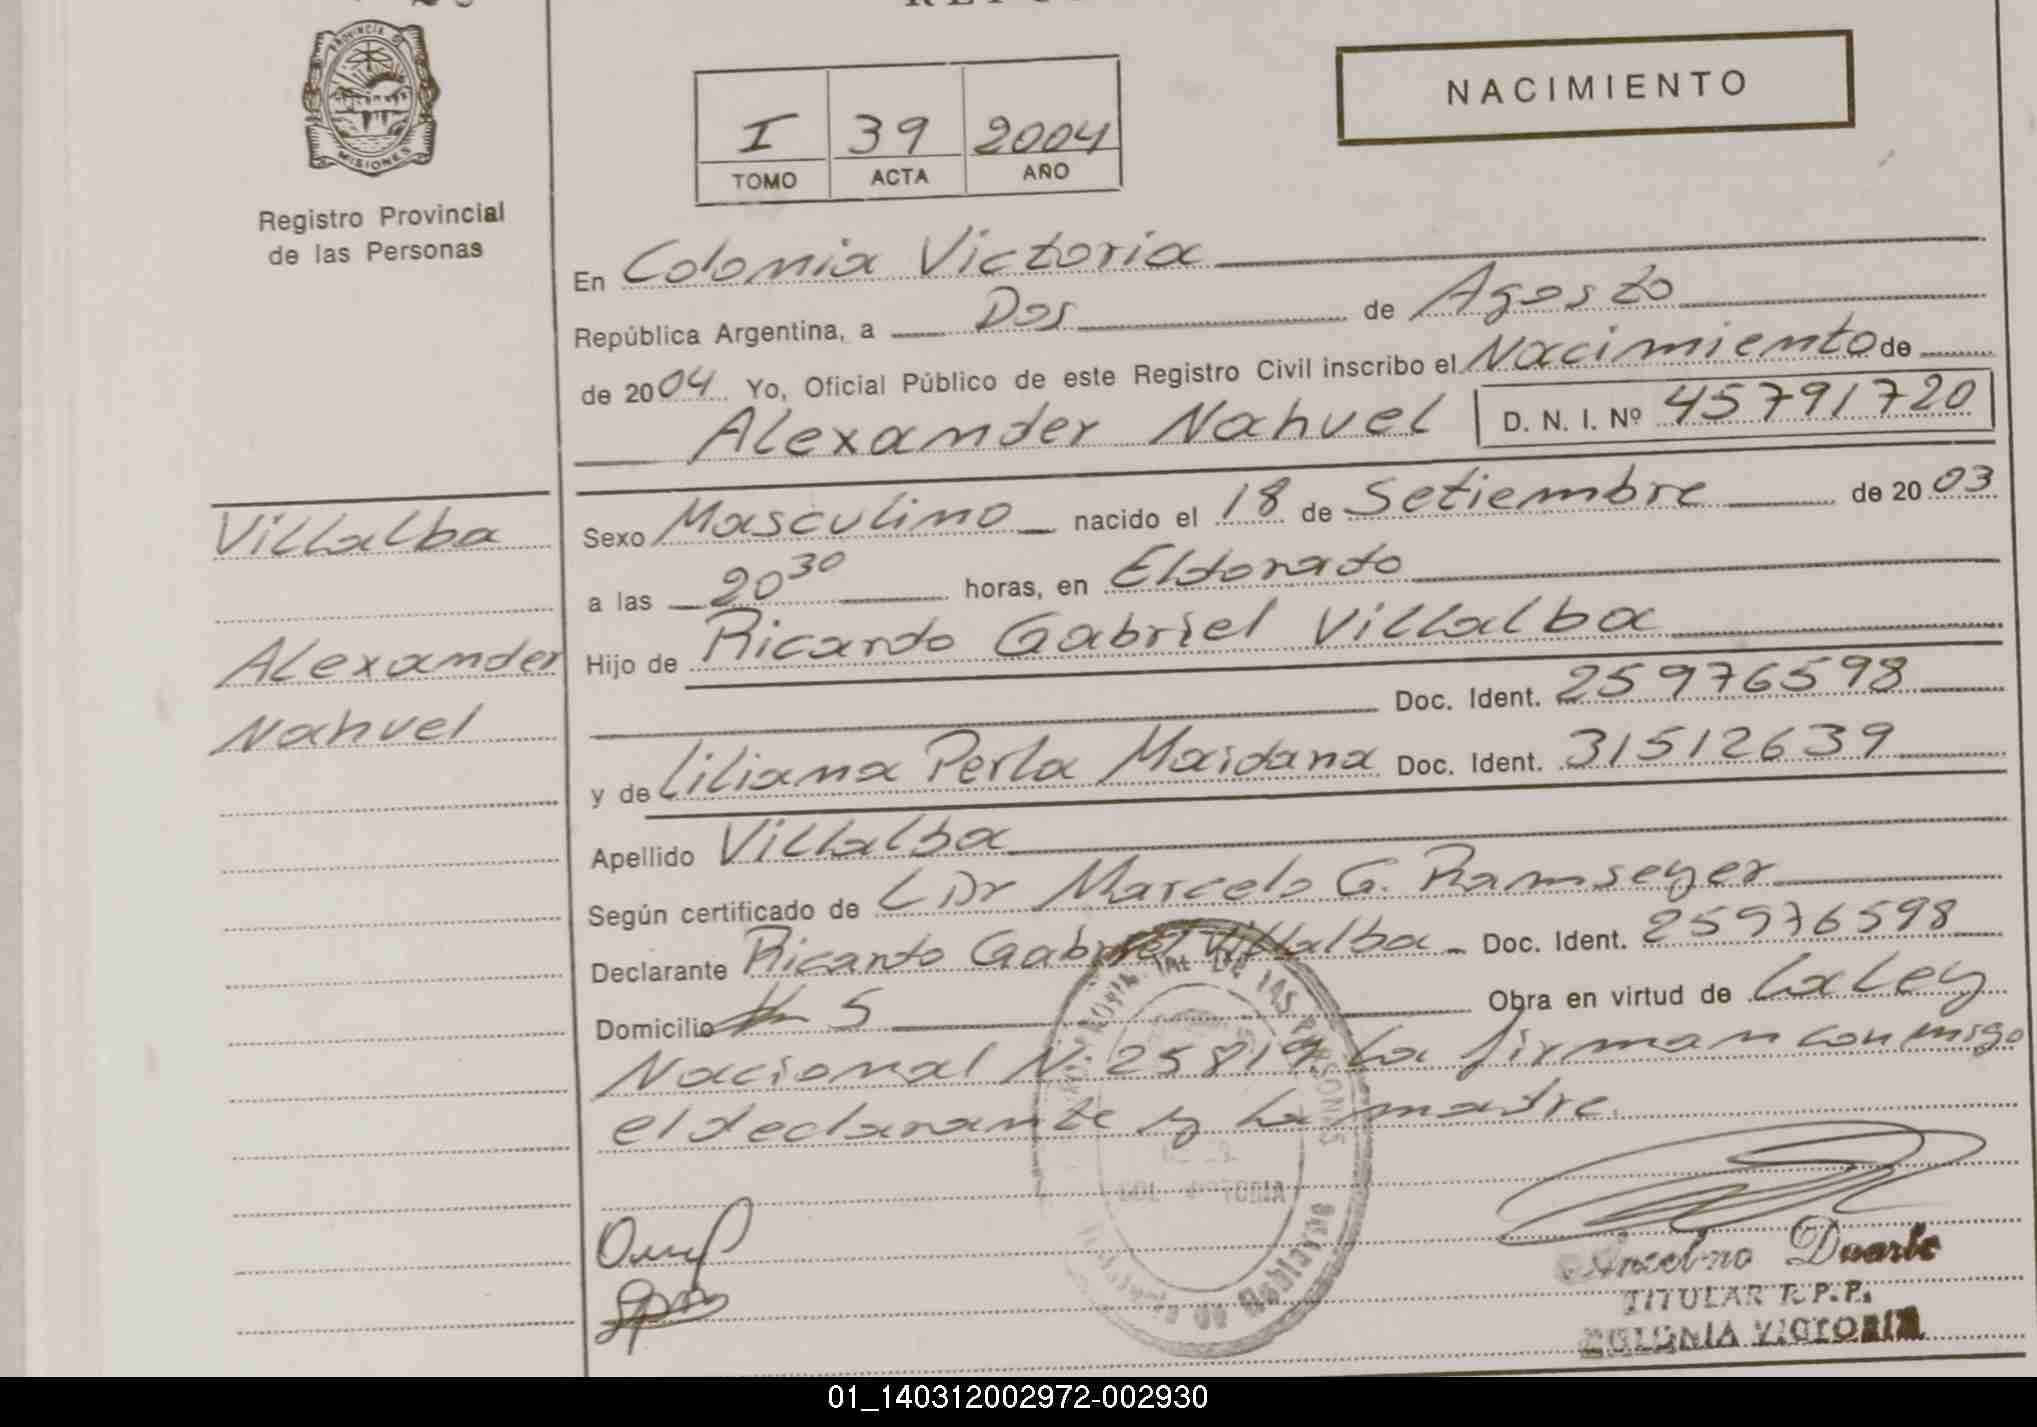 PROVINCIA DE
MISIONES
Registro Provincial
de las Personas
I 39 2004
TOMO ACTA AÑO
NACIMIENTO
En Colonia Victoria
República Argentina, a Dos de Agosto
de 2004 Yo, Oficial Público de este Registro Civil inscribo el Nacimiento de
Alexander Nahuel D. N. I. Nº 45791720
Villalba
Alexander
Nahuel
Sexo Masculino nacido el 18 de Setiembre de 2003
a las 20 30 horas, en Eldorado
Hijo de Ricardo Gabriel Villalba
Doc. Ident. 25976598
y de Liliana Perla Maidana Doc. Ident. 31512639
Apellido Villalba
Según certificado de Dr Marcelo G. Ramseyer
Declarante Ricardo Gabriel Villalba Doc. Ident. 25976598
Domicilio Km 5 Obra en virtud de La Ley
Nacional N: 25819. La firman conmigo
el declarante y la madre.
DE LAS PERSONAS
COL. VICTORIA
Anselmo Duarte
TITULAR R.P.P.
COLONIA VICTORIA
01_140312002972-002930